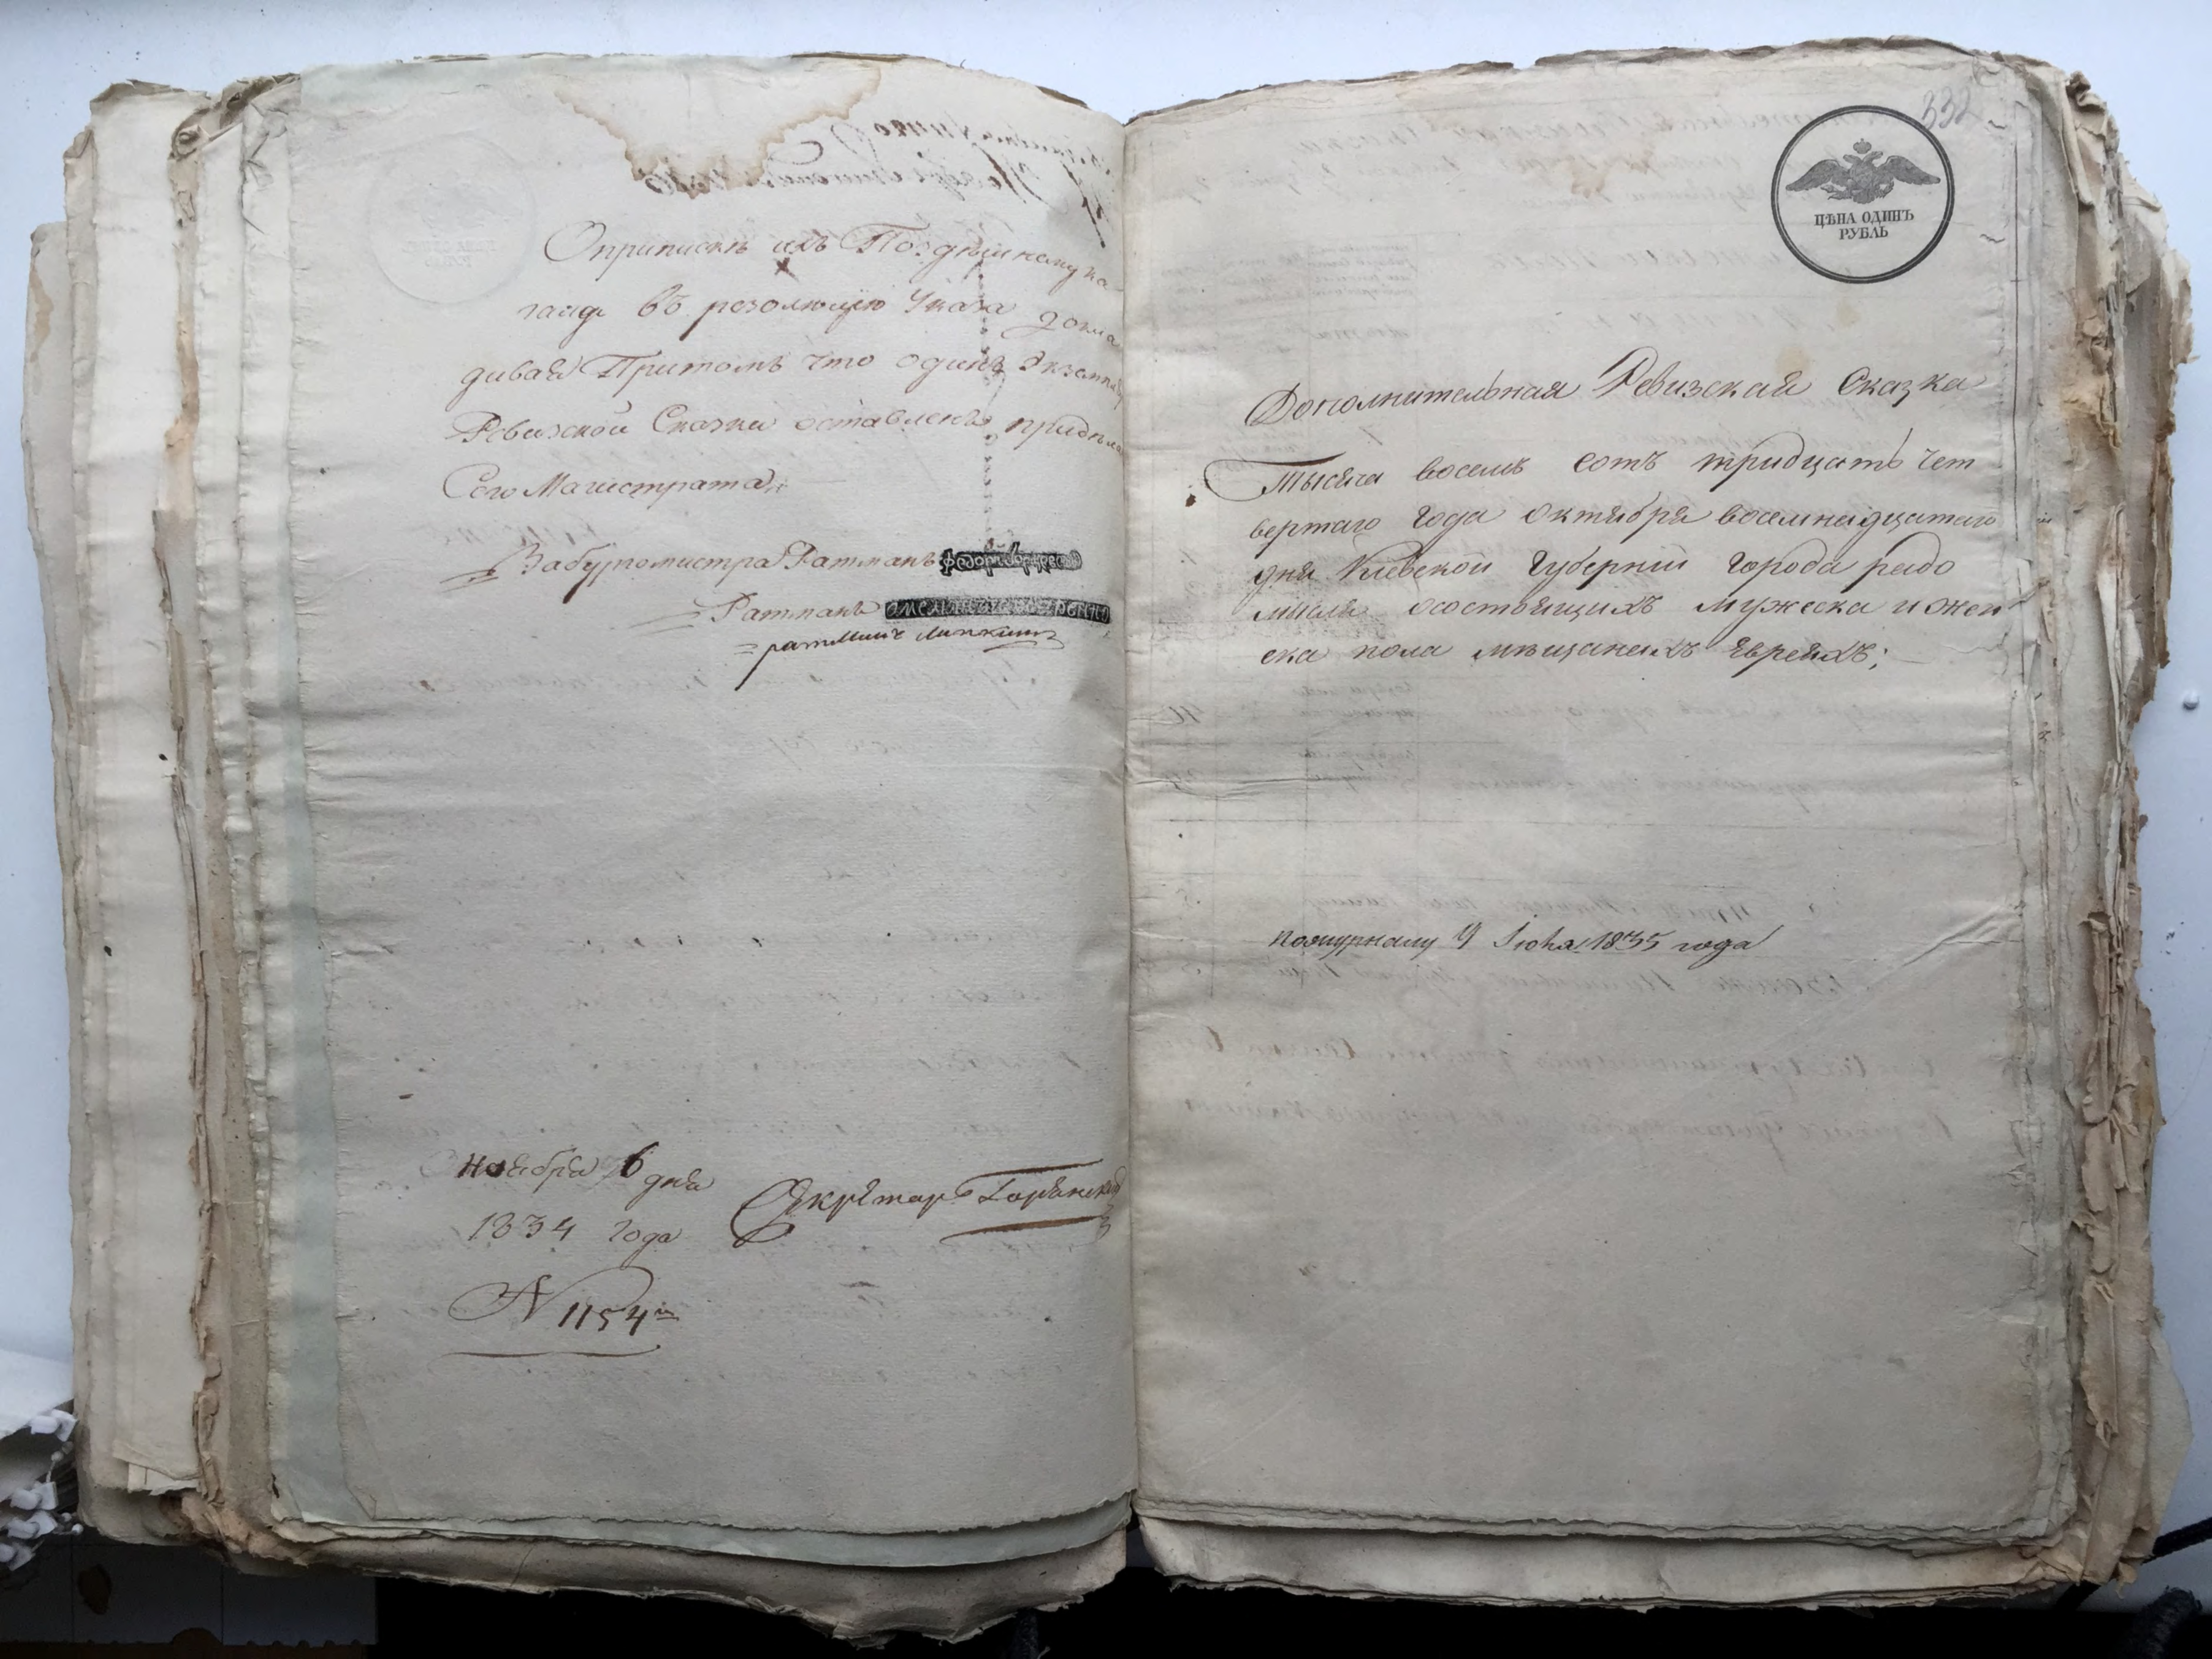 О припискѣ ихъ По здѣшнему ка
галу въ резолюцію Указа докла
дывая Притомъ что одинъ Экземпляр
Ревизской Сказки оставленъ придѣла
Сего Магистрата.
За бургомистра Ратманъ
Ратманъ
ратманъ Липкинъ
ноября 6 дня
1834 года
Секретарь Горянский
N 1154й
332
ЦѢНА ОДИНЪ
РУБЛЬ
Дополнительная Ревизская Сказка
Тысяча восемь сотъ тридцать чет
вертаго года октября восемнадцатаго
дня Киевской Губерніи города радо
мысля о состоящихъ мужеска и жен
ска пола мѣщанахъ Евреяхъ;
по журналу 9 Іюня 1835 года